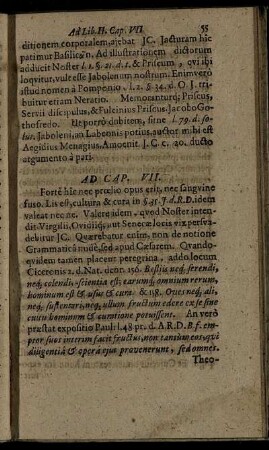 Ad Lib. II. Cap. VII. 55
ditionem corporalem, ajebat JC. Jacturam hîc
patimur Basilicωn. Ad illustrationem dictorum
adducit Noster l. 1. §. 21. d. t. & Priscum, qvi ibi
loqvitur, vult esse Jabolenum nostrum. Enimverò
istud nomen à Pompenio l. 2. §. 34. d. O. J. tri-
buitur etiam Neratio. Memorantur; Priscus,
Servii discipulus, & Fulcinius Priscus. Jacobo Go-
thofredo. Ut porrò dubitem, sitne l. 79. d. so-
lut. Jaboleni, an Labeonis potius, auctor mihi est
Aegidius Menagius, Amoenit. J. C. c. 20. ducto
argumento à pati.
AD CAP. VII.
Fortè hîc nec prælio opus erit, nec sangvine
fuso. Lis est, cultura & cura in §. 35. J. d. R. D. idem
valeat nec ne. Valere idem, qvod Noster inten-
dit, Virgilii, Ovidiiq; aut Senecæ locis vix persva-
debitur JC. Quærebatur enim, non de notione
Grammaticâ nudè, sed apud Cæsarem. Qvando-
qvidem tamen placent peregrina, addo locum
Ciceronis 2. d. Nat. deor. 156. Bestiis neq; serendi,
neq; colendi, scientia est; earumq; omnium rerum,
hominum est & usus & cura. & 158. Oves neq; ali,
neq; sustentari, neq; ullum fructum edere ex se sine
cultu hominum & curatione potuissent. An verò
præstat expositio Pauli l. 48. pr. d. A. R. D. B. f. em-
ptor suos interim facit fructus, non tantùm eos, qvi
diligentiâ & operâ ejus provenerunt, sed omnes.
Theo-